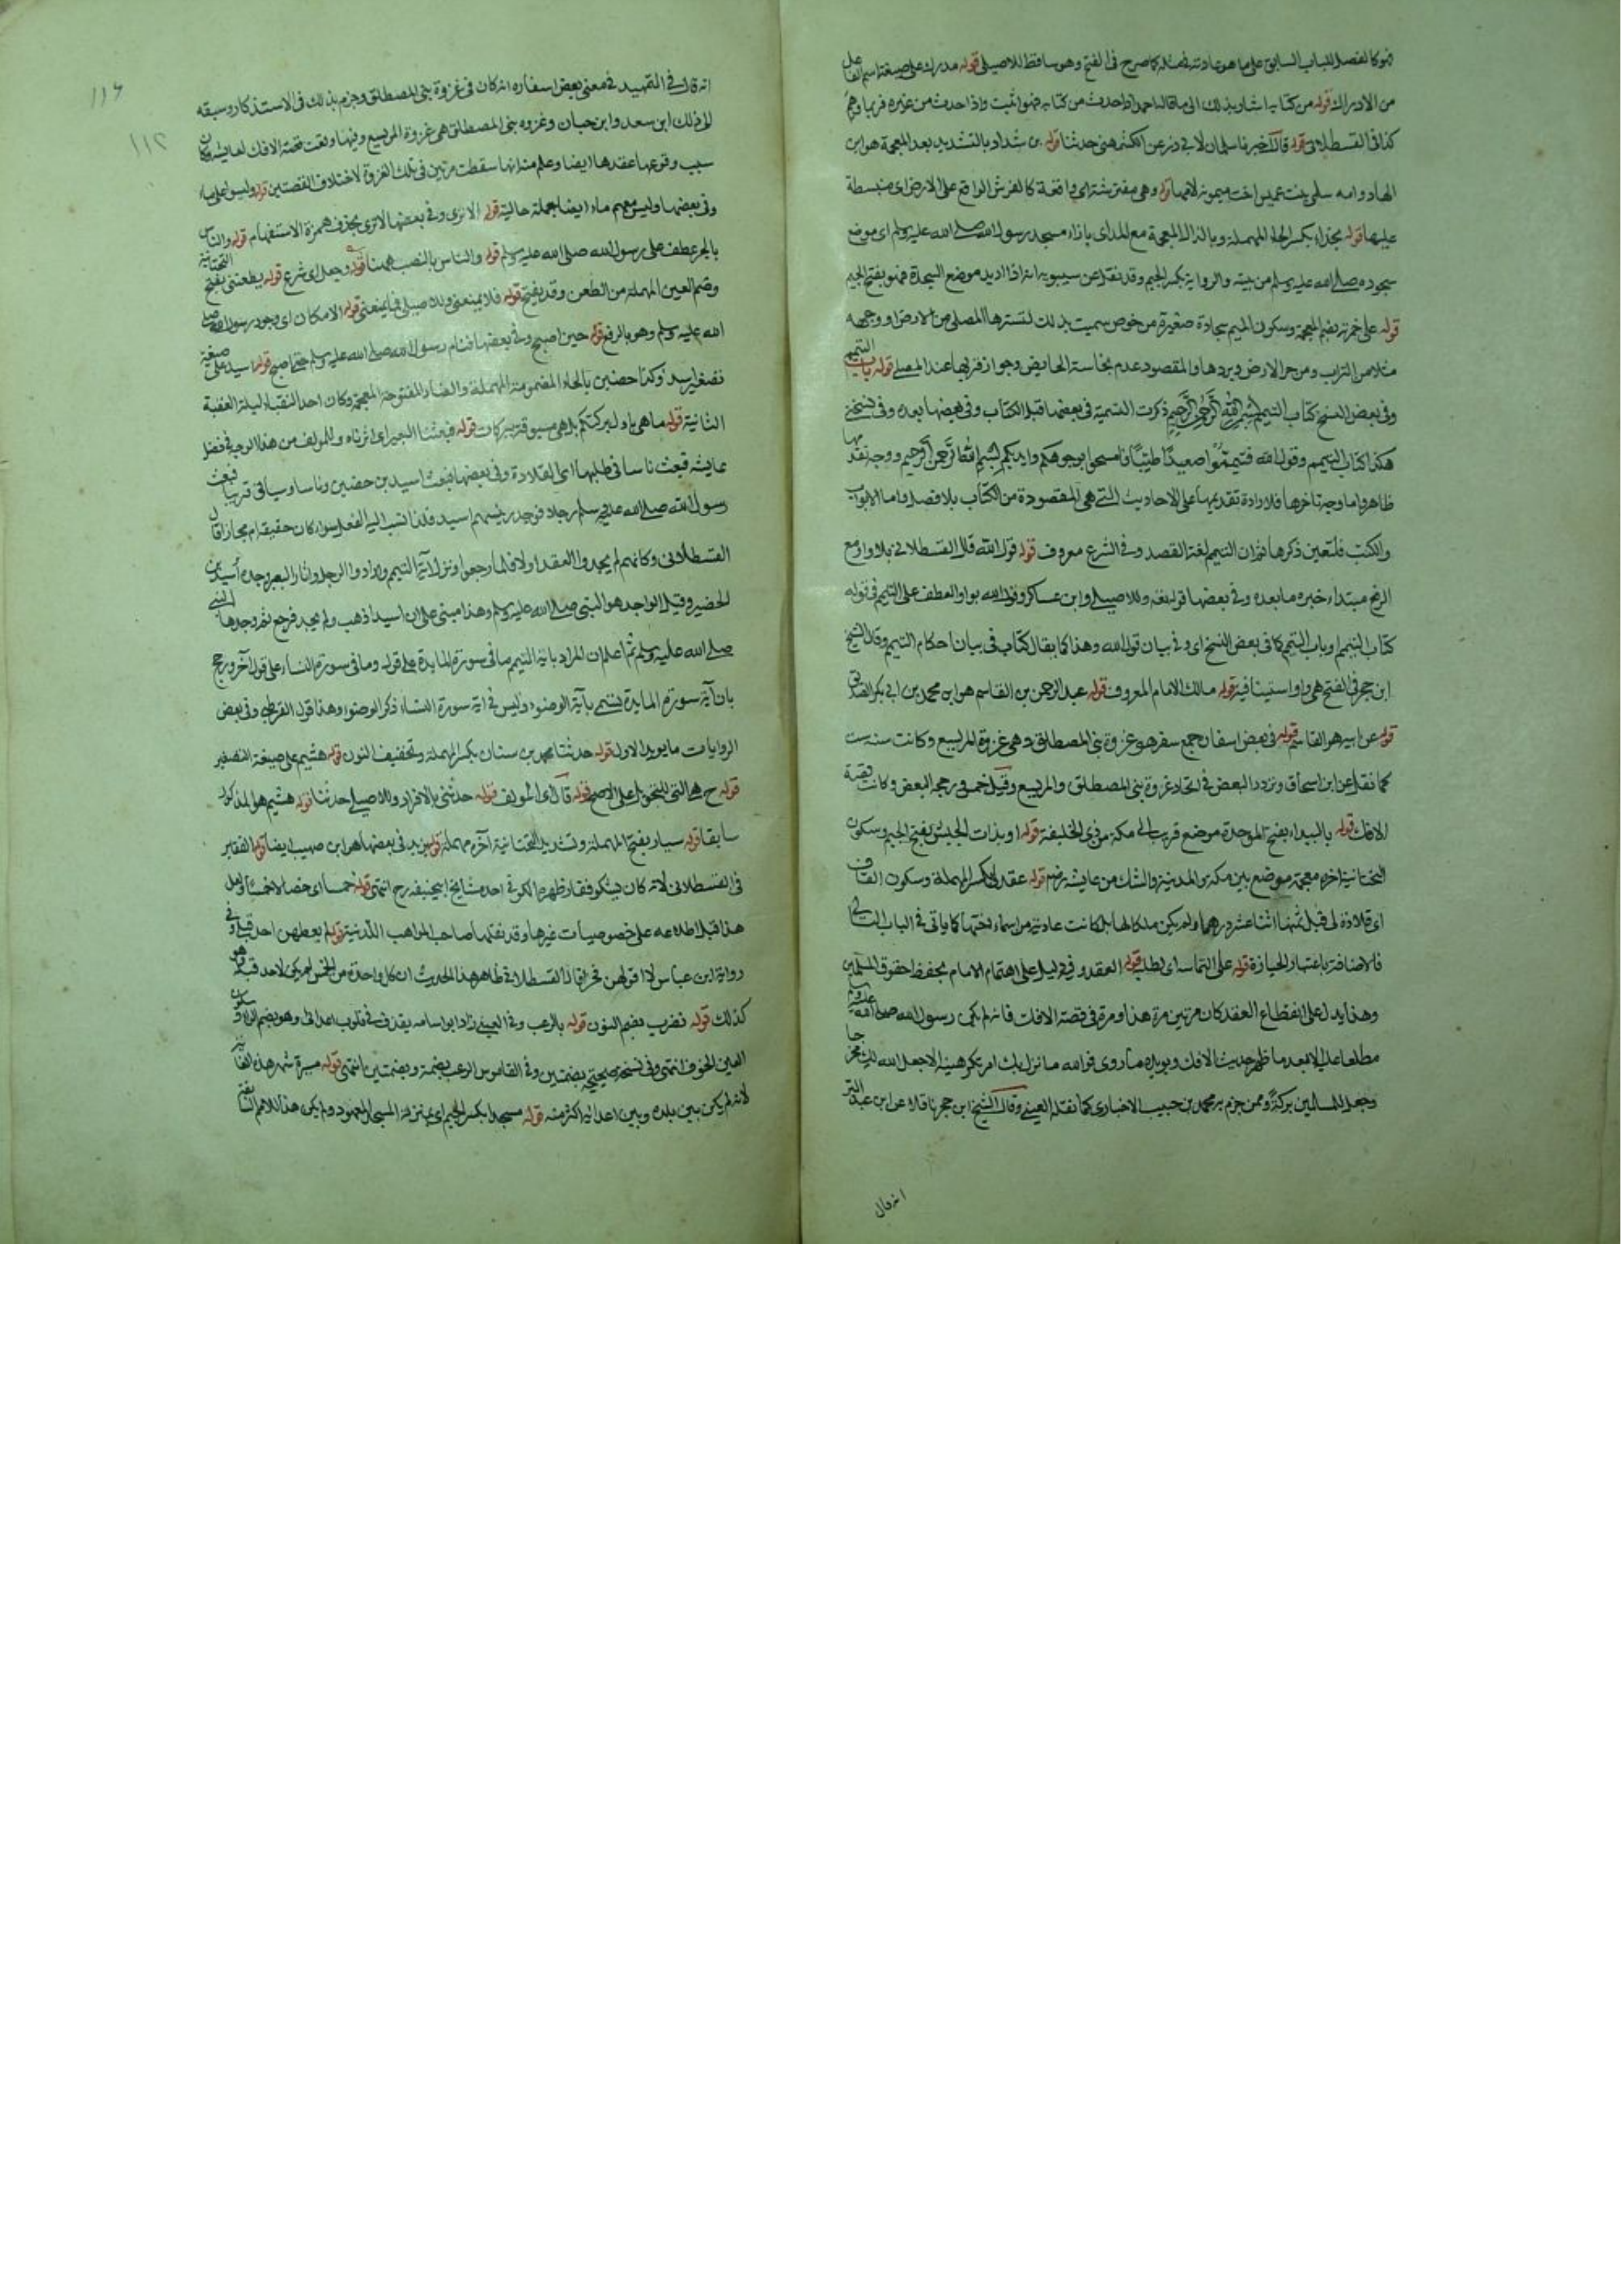 فهو كالفصل للباب السابق على ما هو عادته في مثله كما صرح في الفتح وهو ساقط للاصيلي قوله مدرك على صيغة اسم الفاعل
من الادراك قوله من كتابه اشار بذلك الى ما قاله احمد اذا حدث من كتابه فهو اثبت واذا حدث من غيره فربما وهم
كذا في القسطلاني قوله قال اخبرنا سليمان لابي ذر عن الكشمهني حدثنا قوله بن شداد بالتشديد بعد المعجمة هو ابن
الهاد وامه سلمى بنت عميس اخت ميمونة لامها قوله وهي مفترشة اي واقعة كالفرش الواقع على الارض اي منبسطة
عليها قوله بحذاء بكسر الحاء المهملة وبالذال المعجمة مع المد اي بازاء مسجد رسول الله صلى الله عليه وسلم اي موضع
سجوده صلى الله عليه وسلم من بيته والرواية بكسر الجيم وقد نقل عن سيبويه انه اذا اريد موضع السجدة فهو بفتح الجيم
قوله على خمرته بضم المعجمة وسكون الميم سجادة صغيرة من خوص سميت بذلك لتسترها المصلي من الارض او وجهه
مثلا من التراب ومن حر الارض وبردها والمقصود عدم نجاسة الحايض وجواز قربها عند المصلي قوله باب التيمم
وفي بعض النسخ كتاب التيمم بسم الله الرحمن الرحيم ذكرت التسمية في بعضها قبل الكتاب وفي بعضها بعده وفي نسختي
هكذا كتاب التيمم وقول الله فتيمموا صعيدًا طيبًا فامسحوا بوجوهكم وايديكم بسم الله الرحمن الرحيم ووجه تقدمها
ظاهر واما وجه تاخرها فلارادة تقديمها على الاحاديث التي هي المقصودة من الكتاب بلا فصل واما الابواب
والكتب فلتعين ذكرها ثم ان التيمم لغة القصد وفي الشرع معروف قوله قول الله قال القسطلاني بلا واو مع
الرفع مبتداء خبره ما بعده وفي بعضها قوله وللاصيلي وابن عساكر وقول الله بواو العطف على التيمم في قوله
كتاب التيمم او باب التيمم كما في بعض النسخ اي وفي بيان قول الله وهذا كما يقال كتاب في بيان احكام التيمم وقال الشيخ
ابن حجر في الفتح هي واو استينافية قوله مالك الامام المعروف قوله عبد الرحمن بن القاسم هو ابن محمد بن ابي بكر الصديق
قوله عن ابيه هو القاسم قوله في بعض اسفاره جمع سفر هو غزوة بني المصطلق وهي غزوة المريسيع وكانت سنة ست
كما نقل عن ابن اسحاق وتردد البعض في اتحاد غزوة بني المصطلق والمريسيع وقيل خمس ورجحه البعض وكانت قصة
الافك قوله بالبيداء بفتح الموحدة موضع قريب الى مكة من ذي الحليفة قوله او بذات الجيش بفتح الجيم وسكون
التحتانية اخره معجمة موضع بين مكة والمدينة والشك من عايشة رضي قوله عقد لي بكسر المهملة وسكون القاف
اي قلادة لي قيل ثمنها اثنا عشر درهما ولم يكن ملكا لها بل كانت عارية من اسماء اختها كما ياتي في الباب التالي
فالاضافة باعتبار الحيازة قوله على التماسه اي لطلبه قوله العقد وفيه دليل على اهتمام الامام بحفظ حقوق المسلمين
وهذا يدل على انقطاع العقد كان مرتين مرة هذا ومرة في قصة الافك فانه لم يكن رسول الله صلى الله عليه وسلم
مطلعا عليه الا بعد ما ظهر حديث الافك ويويده ما روي فوالله ما نزل بك امر تكرهينه الا جعل الله لك مخرجا
وجعل للمسلمين بركة وممن جزم به محمد بن حبيب الاخباري كما نقله العيني وقال الشيخ ابن حجر ناقلا عن ابن عبد البر
انه قال
١١٦
١١٢
انه قال في التمهيد في معنى بعض اسفاره انه كان في غزوة بني المصطلق وجزم بذلك في الاستذكار وسبقه
الى ذلك ابن سعد وابن حبان وغزوه بني المصطلق هي غزوة المريسيع وفيها وقعت قصة الافك لعايشة وكان
سبب وقوعها عقدها ايضا وعلم منه انها سقطت مرتين في تلك الغزوة لاختلاف القصتين قوله وليسوا على ماء
وفي بعضها وليس معهم ماء ايضا جملة حالية قوله الا ترى وفي بعضها لا ترى بحذف همزة الاستفهام قوله والناس
بالجر عطف على رسول الله صلى الله عليه وسلم قوله والناس بالنصب ههنا قوله وجعل اي شرع قوله يطعنني بفتح التحتانية
وضم العين المهملة من الطعن وقد يفتح قوله فلا يمنعني وللاصيلي فما يمنعني قوله الا مكان اي وجود رسول الله صلى
الله عليه وسلم وهو بالرفع قوله حين اصبح وفي بعضها فنام رسول الله صلى الله عليه وسلم حتى اصبح قوله اسيد على صيغة
تصغير اسد وكذا حضين بالحاء المضمومة المهملة والضاد المفتوحة المعجمة وكان احد النقباء ليلة العقبة
الثانية قوله ما هي باول بركتكم بل هي مسبوقة ببركات قوله فبعثنا البعير اي اثرناه وللمولف من هذا الوجه في فضل
عايشة فبعث ناسا في طلبها اي القلادة وفي بعضها فبعث اسيد بن حضين وناسا وسياتي قريبا فبعث
رسول الله صلى الله عليه وسلم رجلا فوجد رئيسهم اسيد فلذا نسب اليه الفعل سواء كان حقيقة ام مجازا قال
القسطلاني وكانهم لم يجدوا العقد اولا فلما رجعوا ونزل آية التيمم وارادوا الرحيل واثاروا البعير وجده اسيد بن
الحضير وقيل الواجد هو النبي صلى الله عليه وسلم وهذا مبني على ان اسيدا ذهب ولم يجد فرجع ثم وجدها النبي
صلى الله عليه وسلم ثم اعلم ان المراد باية التيمم ما في سورة المايدة على قول وما في سورة النساء على قول آخر ورجح
بان آية سورة المايدة تسمى بآية الوضوء وليس في اية سورة النساء ذكر الوضوء وهذا قول القرطبي وفي بعض
الروايات ما يويد الاول قوله حدثنا محمد بن سنان بكسر المهملة وتخفيف النون قوله هشيم على صيغة التصغير
قوله ح هي التي للتحويل على الاصح قوله قال اي المولف قوله حدثني بالافراد وللاصيلي حدثنا قوله هشيم هو المذكور
سابقا قوله سيار بفتح المهملة وتشديد التحتانية آخره مهملة قوله يزيد في بعضها هو ابن صهيب ايضا قوله الفقير
في القسطلاني لانه كان يشكو فقار ظهره الكوفي احد مشايخ ابي حنيفة رح انتهى قوله خمسا اي خصالا خمسًا ولعل
هذا قبل اطلاعه على خصوصيات غيرها وقد نقلها صاحب المواهب اللدنية قوله لم يعطهن احد قبلي وفي
رواية ابن عباس لا اقولهن فخرا قال القسطلاني ظاهر هذا الحديث ان كل واحدة من الخمس لم يكن لاحد قبله وهو
كذلك قوله نصرت بضم النون قوله بالرعب وفي العيني زاد ابو امامة يقذف في قلوب اعدائي وهو بضم الراء وسكون
العين الخوف انتهى وفي نسخة صحيحة بضمتين وفي القاموس الرعب بضمة وبضمتين انتهى قوله مسيرة شهر هذه الغاية
لانه لم يكن بين بلده وبين اعدائه اكثر منه قوله مسجدا بكسر الجيم اي بمنزلة المسجد المعهود ولم يكن هذا للامم السابقة